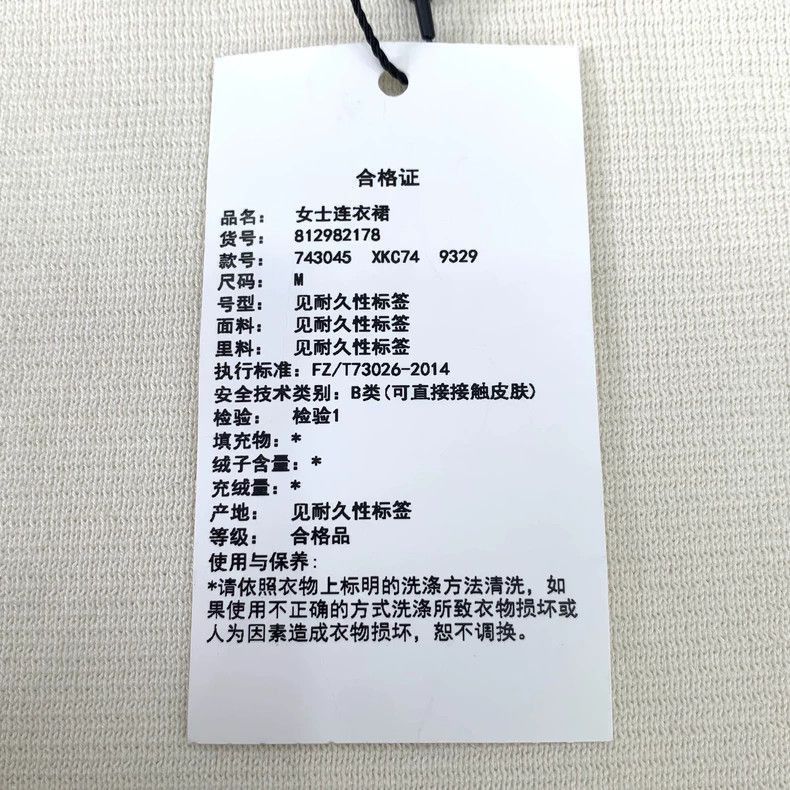 合格证
品名： 女士连衣裙
货号： 812982178
款号： 743045 XKC74 9329
尺码： M
号型： 见耐久性标签
面料： 见耐久性标签
里料： 见耐久性标签
执行标准：FZ/T73026-2014
安全技术类别：B类(可直接接触皮肤)
检验： 检验1
填充物：*
绒子含量：*
充绒量：*
产地： 见耐久性标签
等级： 合格品
使用与保养：
*请依照衣物上标明的洗涤方法清洗，如
果使用不正确的方式洗涤所致衣物损坏或
人为因素造成衣物损坏，恕不调换。